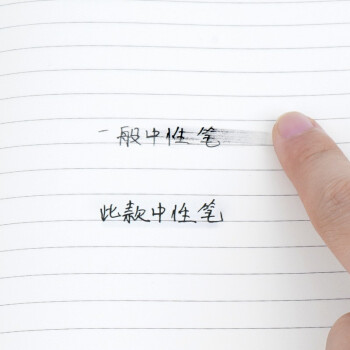 一般中性笔
此款中性笔